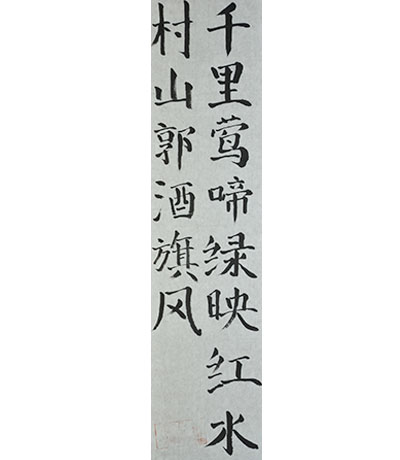 千里莺啼绿映红水
村山郭酒旗风